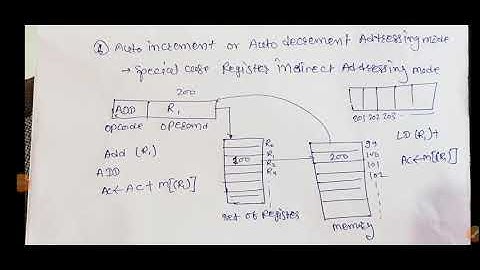 Auto increment or Auto decrement Addressing mode
→ special case Register indirect Addressing mode
200
ADD R1
opcode operand
201 202 203
Add (R1)
ADD
AC ← AC + M[(R1)]
R0
R1
R2
R4
200
set of Register
99
100
101
102
200
memory
LD (R1)+
AC ← M[(R1)]